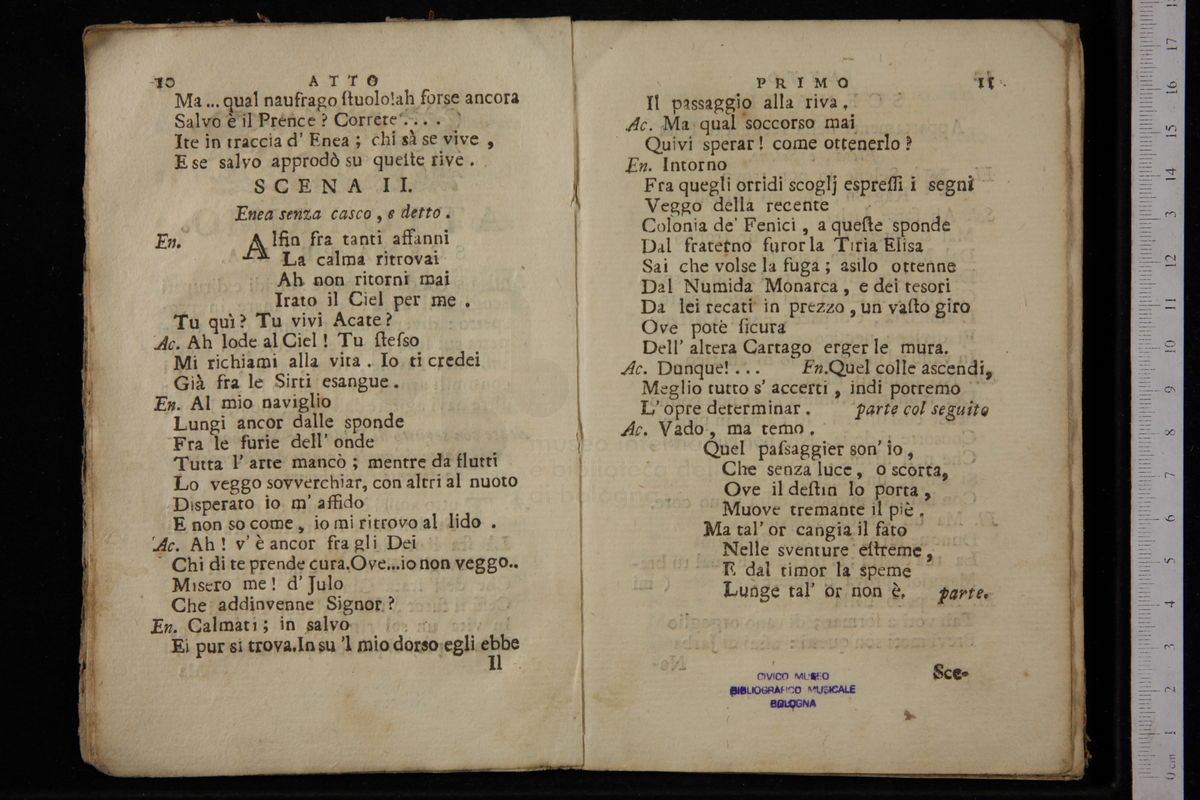 10 ATTO
Ma ... qual naufrago ſtuolo!ah forse ancora
Salvo è il Prence ? Correte . . . .
Ite in traccia d' Enea ; chi sà se vive ,
E se salvo approdò su queſte rive .
SCENA II.
Enea senza casco , e detto .
En. Alfin fra tanti affanni
La calma ritrovai
Ah non ritorni mai
Irato il Ciel per me .
Tu quì ? Tu vivi Acate ?
Ac. Ah lode al Ciel ! Tu ſteſso
Mi richiami alla vita . Io ti credei
Già fra le Sirti esangue .
En. Al mio naviglio
Lungi ancor dalle sponde
Fra le furie dell' onde
Tutta l' arte mancò ; mentre da flutti
Lo veggo sovverchiar, con altri al nuoto
Disperato io m' affido
E non so come , io mi ritrovo al lido .
Ac. Ah ! v' è ancor fra gli Dei
Chi di te prende cura.Ove...io non veggo..
Misero me ! d' Julo
Che addinvenne Signor ?
En. Calmati ; in salvo
Ei pur si trova.In su 'l mio dorso egli ebbe
Il
PRIMO 11
Il passaggio alla riva .
Ac. Ma qual soccorso mai
Quivi sperar ! come ottenerlo ?
En. Intorno
Fra quegli orridi scoglj espreſſi i segni
Veggo della recente
Colonia de' Fenici , a queſte sponde
Dal fraterno furor la Tiria Elisa
Sai che volse la fuga ; asilo ottenne
Dal Numida Monarca , e dei tesori
Da lei recati in prezzo , un vaſto giro
Ove potè ſicura
Dell' altera Cartago erger le mura.
Ac. Dunque! . . . En.Quel colle ascendi,
Meglio tutto s' accerti , indi potremo
L' opre determinar . parte col seguito
Ac. Vado , ma temo .
Quel paſsaggier son' io ,
Che senza luce , o scorta,
Ove il deſtin lo porta ,
Muove tremante il piè .
Ma tal' or cangia il fato
Nelle sventure eſtreme ,
E dal timor la speme
Lunge tal' or non è. parte.
Sce-
CIVICO MUSEO
BIBLIOGRAFICO MUSICALE
BOLOGNA